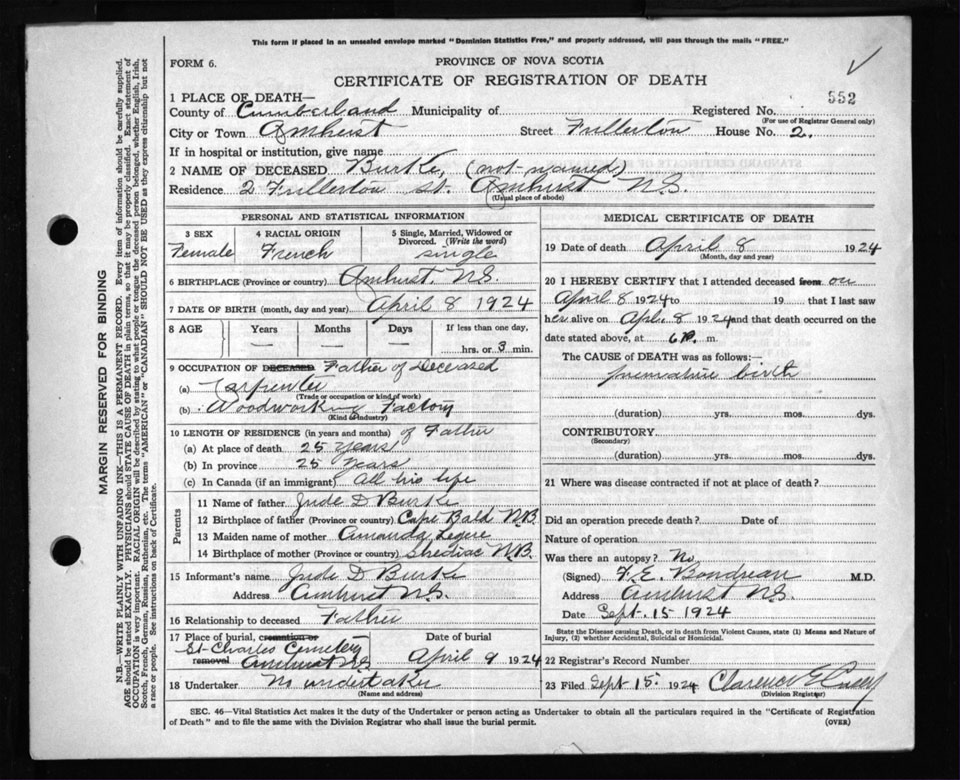 This form if placed in an unsealed envelope marked "Dominion Statistics Free," and properly addressed, will pass through the mails "FREE."
FORM 6.
PROVINCE OF NOVA SCOTIA
CERTIFICATE OF REGISTRATION OF DEATH
1 PLACE OF DEATH—
552
County of Cumberland Municipality of Registered No.
(For use of Registrar General only)
City or Town Amherst Street Fullerton House No. 2.
If in hospital or institution, give name
2 NAME OF DECEASED Burke, (not named)
Residence 2 Fullerton St. Amherst N.S.
(Usual place of abode)
PERSONAL AND STATISTICAL INFORMATION
3 SEX 4 RACIAL ORIGIN 5 Single, Married, Widowed or Divorced. (Write the word)
Female French single
6 BIRTHPLACE (Province or country) Amherst, N.S.
7 DATE OF BIRTH (month, day and year) April 8 1924
8 AGE Years Months Days If less than one day,
— — — hrs. or 3 min.
9 OCCUPATION OF DECEASED Father of Deceased
(a) Carpenter
(Trade or occupation or kind of work)
(b) Woodworking Factory
(Kind of industry)
10 LENGTH OF RESIDENCE (in years and months) of Father
(a) At place of death 25 years
(b) In province 25 years
(c) In Canada (if an immigrant) all his life
Parents
11 Name of father Jude D Burke
12 Birthplace of father (Province or country) Cape Bald N.B.
13 Maiden name of mother Amanda Legere
14 Birthplace of mother (Province or country) Shediac N.B.
15 Informant's name Jude D Burke
Address Amherst N.S.
16 Relationship to deceased Father
17 Place of burial, cremation or Date of burial
St. Charles Cemetery
removal Amherst N.S. April 9 1924
18 Undertaker No undertaker
(Name and address)
MEDICAL CERTIFICATE OF DEATH
19 Date of death April 8 1924
(Month, day and year)
20 I HEREBY CERTIFY that I attended deceased from on
April 8 1924 to 19 that I last saw
her alive on Apl. 8 1924 and that death occurred on
date stated above, at 6 P. m.
The CAUSE OF DEATH was as follows:
premature birth
(duration) yrs. mos. dys.
CONTRIBUTORY
(Secondary)
(duration) yrs. mos. dys.
21 Where was disease contracted if not at place of death?
Did an operation precede death? Date of
Nature of operation
Was there an autopsy? No
(Signed) F. E. Boudreau M.D.
Address Amherst N.S.
Date Sept. 15 1924
State the Disease causing Death, or in death from Violent Causes, state (1) Means and Nature of
Injury, (2) whether Accidental, Suicidal or Homicidal.
22 Registrar's Record Number
23 Filed Sept 15 1924 Clarence E
(Division Registrar)
SEC. 46—Vital Statistics Act makes it the duty of the Undertaker or person acting as Undertaker to obtain all the particulars required in the "Certificate of Registration
of Death" and to file the same with the Division Registrar who shall issue the burial permit.
(OVER)
MARGIN RESERVED FOR BINDING
N.B.—WRITE PLAINLY WITH UNFADING INK—THIS IS A PERMANENT RECORD. Every item of information should be carefully supplied.
AGE should be stated EXACTLY. PHYSICIANS should STATE CAUSE OF DEATH in plain terms, so that it may be properly classified. Exact statement of
OCCUPATION is very important. RACIAL ORIGIN will be described by stating to what people or tongue the deceased person belonged, whether English, Irish,
Scotch, French, German, Russian, Ruthenian, etc. The terms "AMERICAN" or "CANADIAN" SHOULD NOT BE USED as they express citizenship but not
a race or people. See instructions on back of Certificate.